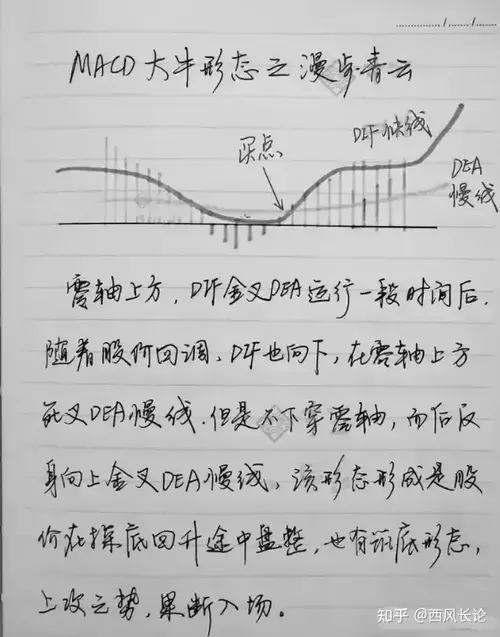 MACD大牛形态之漫步青云
买点
DIF快线
DEA
慢线
零轴上方,DIF金叉DEA运行一段时间后,
随着股价回调、DIF也向下,在零轴上方
死叉DEA慢线.但是不下穿零轴,而后反
身向上金叉DEA慢线,该形态形成是股
价在探底回升途中盘整,也有筑底形态,
上攻之势,果断入场。
知乎 @西风长论